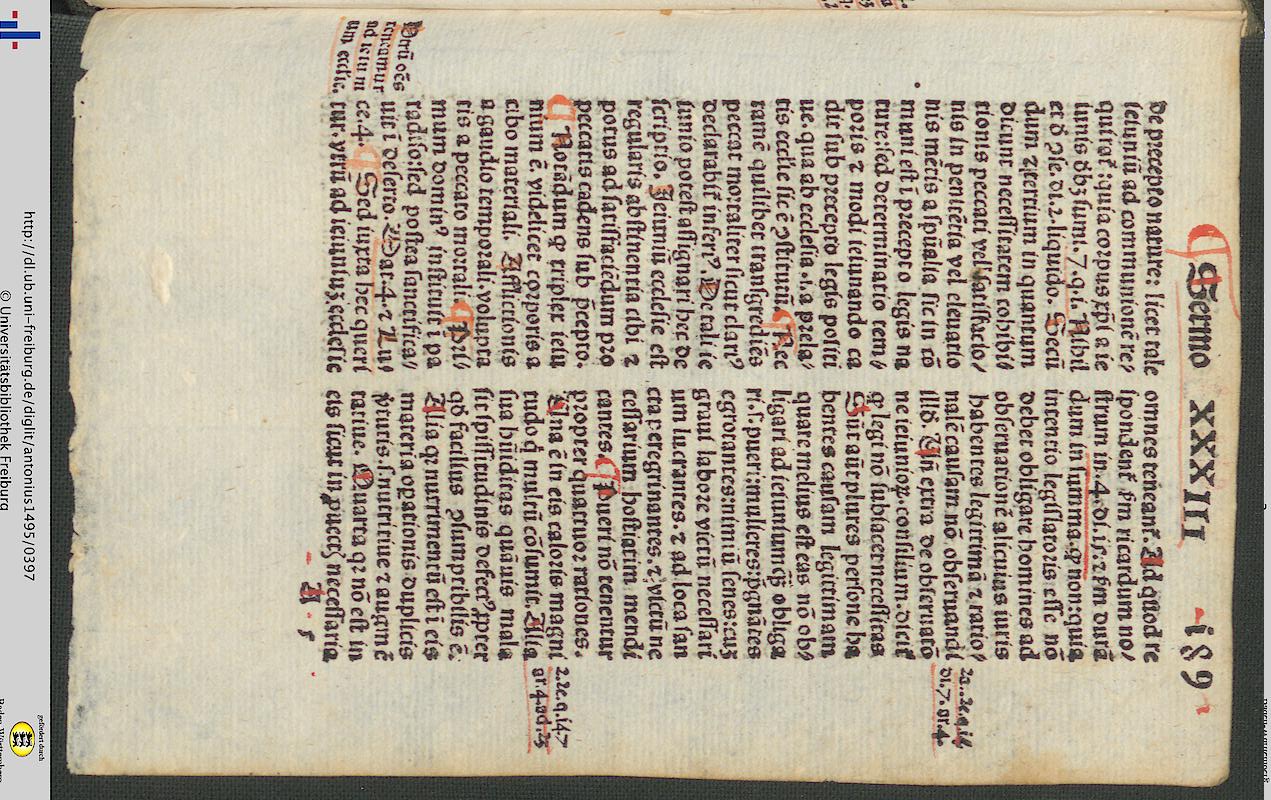 ¶ Sermo XXXIII
189
de precepto nature: licet tale
ieiuniū ad communionē re/
quirat᷑: quia corpus xp̄i a ie
iunis dꝫ sumi. 7.q.i. Nihil
et d̄ ꝯse. di. 2. liquido. Secū
dum ⁊ tertium in quantum
dicunt necessitatem cohibi/
tionis peccati vel satisfactio/
nis in penitētia vel eleuatio
nis mētis a spūalia sic in cō
muni est ī precepto legis na
ture: sed determinatio tem/
poris ⁊ modi ieiunando ca
dit sub precepto legis positi
ue. qua ab ecclesia .i. a prela/
tis ecclie sic ē ꝯstitutū. ¶ Nec
tamē quilibet transgrediēs
peccat mortaliter sicut clari⁹
declarabit᷑ inferi⁹. De tali ie
iunio potest assignari hec de
scriptio. Ieiuniū ecclesie est
regularis abstinentia cibi ⁊
potus ad satisfaciēdum p̄o
peccatis cadens sub p̄cepto.
¶ Notādum ꝙ triplex ieiu
nium ē. videlicet corporis a
cibo materiali. Afflictionis
a gaudio temporali. volupta
tis a peccato mortali. ¶ Pri/
mum domin⁹ instituit ī pa
radiso/sed postea sanctifica/
uit ī deserto. Mat. 4. ⁊ Lu/
ce. 4. ¶ Sed iuxta hec querī
tur. vtrū ad ieiuniuꝫ ecclesie
Vtrū oēs
teneamur
ad ieiuni
um ecclie.
omnes teneant᷑. Ad quod re
spondent s̄m ricardum no/
strum in. 4. di. 15. ⁊ s̄m durā
dum in summa. ꝙ non: quia
intentio legislatoris esse nō
debet obligare homines ad
obseruationē alicuius iuris
habentes legitimā ⁊ ratio/
nalē causam nō obseruandi
illd. Vn̄ extra de obseruatō
ne ieiunioꝝ. consilium. dicit᷑
ꝙ legi nō subiacet necessitas
Sūt aūt plures persone ha
bentes causam legitimam
quare melius est eas nō ob/
ligari ad ieiuniumꝙ̄ obliga
ri. s. pueri: mulieres pgnātes
egrotantes: nimiū senes: cuꝫ
graui labore victū necessari
um lucrantes. ⁊ ad loca san
cta peregrinantes. ⁊ victū ne
cessarium hostiatim mendi
cantes. ¶ Pueri nō tenentur
propter quatuor rationes.
Vna ē in eis caloris magni
tudo ꝗ multū cōsumit. Alia
sua hūiditas quāuis mala
sit spissitudinis defect⁹ ꝓpter
qd̄ facilius ꝯsumptibilis ē.
Alia ꝙ nutrimentū est ī eis
materia opationis duplicis
ꝟtutis. s. nutritiue ⁊ augmē
tatiue. Quarta ꝙ nō est in
eis sicut in puect̄ necessaria
2.2e.q.147
ar.4.ad.25
A . s
http://dl.ub.uni-freiburg.de/diglit/antonius1495/0397
© Universitätsbibliothek Freiburg
gefördert durch